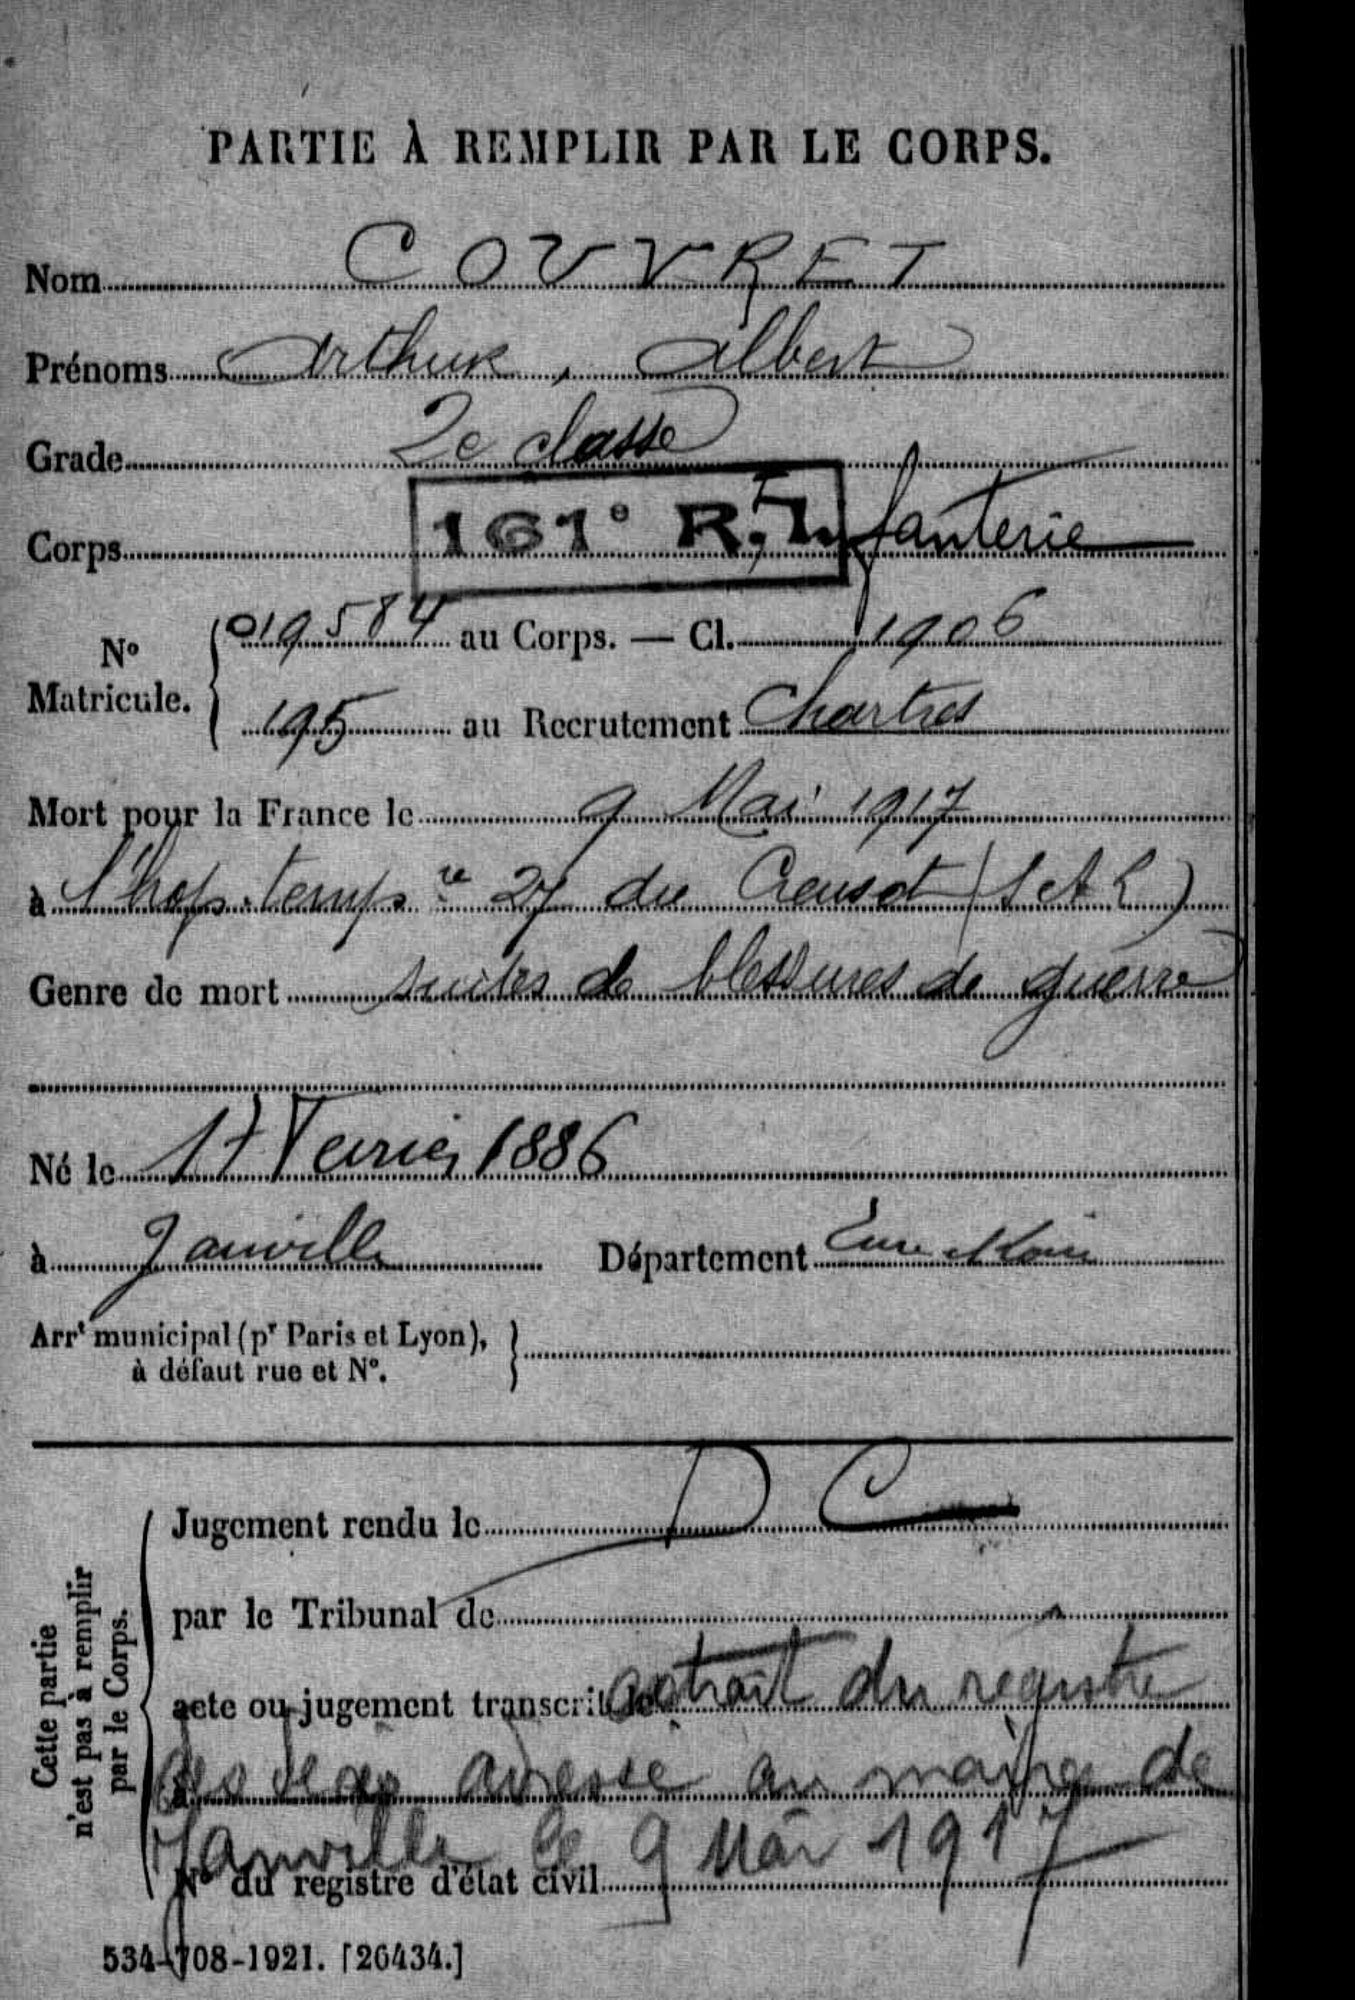 PARTIE À REMPLIR PAR LE CORPS.
Nom COUVRET
Prénoms Arthur, Albert
Grade 2e classe
Corps 161e R.I. Infanterie
No Matricule. 019584 au Corps. — Cl. 1906
195 au Recrutement Chartres
Mort pour la France le 9 Mai 1917
à l'hop. temp re 27 du Creusot (S et L)
Genre de mort suites de blessures de guerre
Né le 17 Fevrier 1886
à Janville Département Eure et Loir
Arrt municipal (pr Paris et Lyon),
à défaut rue et No.
Cette partie
n'est pas à remplir
par le Corps.
D C
Jugement rendu le
par le Tribunal de
acte ou jugement transcrit le extrait du registre
des adressé au maire de
Janville le 9 Mai 1917
No du registre d'état civil
534-708-1921. [26434.]